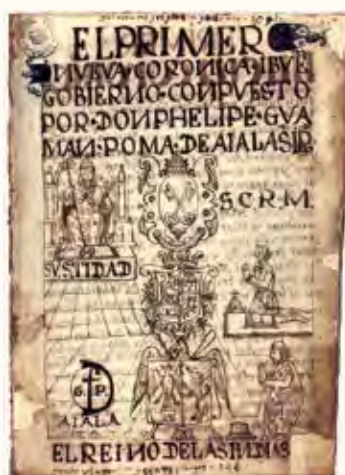 EL PRIMER
NVEVA CORONICA I BVE
GOBIERNO CONPVESTO
POR DON PHELIPE GVA
MAN POMA DE AIALA S I R
S.C.R.M.
SVSTIDAD
G P
AIALA
EL REINO DE LAS INDIAS